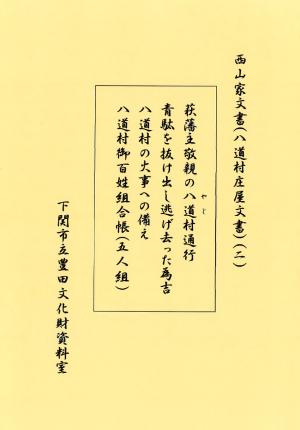 西山家文書(八道村庄屋文書)(二)
萩藩主敬親の八道村通行
やじ
青駄を抜け出し逃げ去った為吉
八道村の火事への備え
八道村御百姓組合帳(五人組)
下関市立豊田文化財資料室